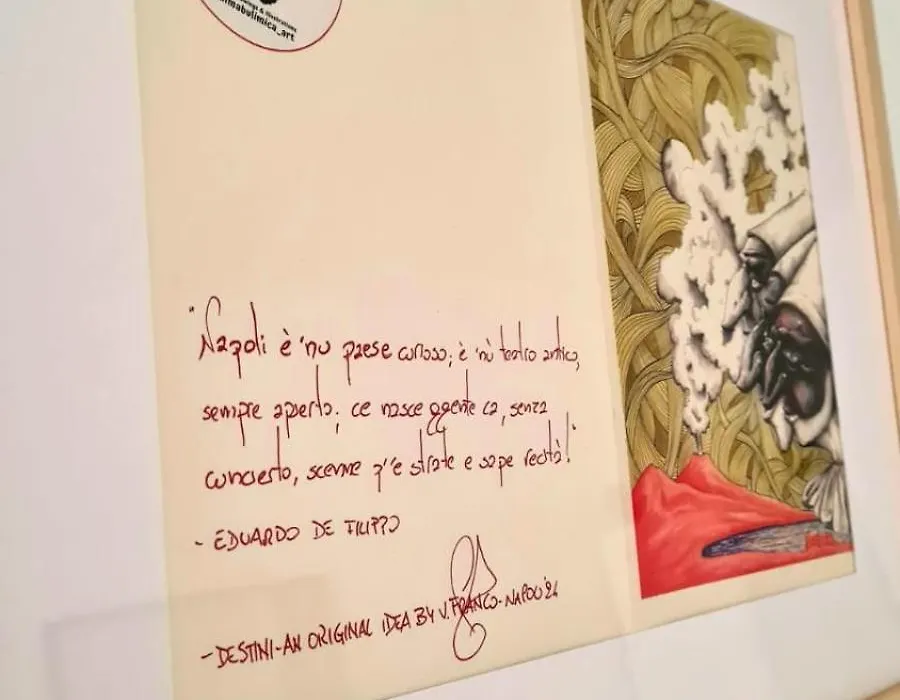 & illustrations
mabolimica_art
"Napoli è 'nu paese curioso; è 'nu teatro antico,
sempre apierto. ce nasce ggente ca, senza
cuncierto, scenne p''e strate e sape recità!"
- EDUARDO DE FILIPPO
- DESTINI - AN ORIGINAL IDEA BY V. FRANCO - NAPOLI '21